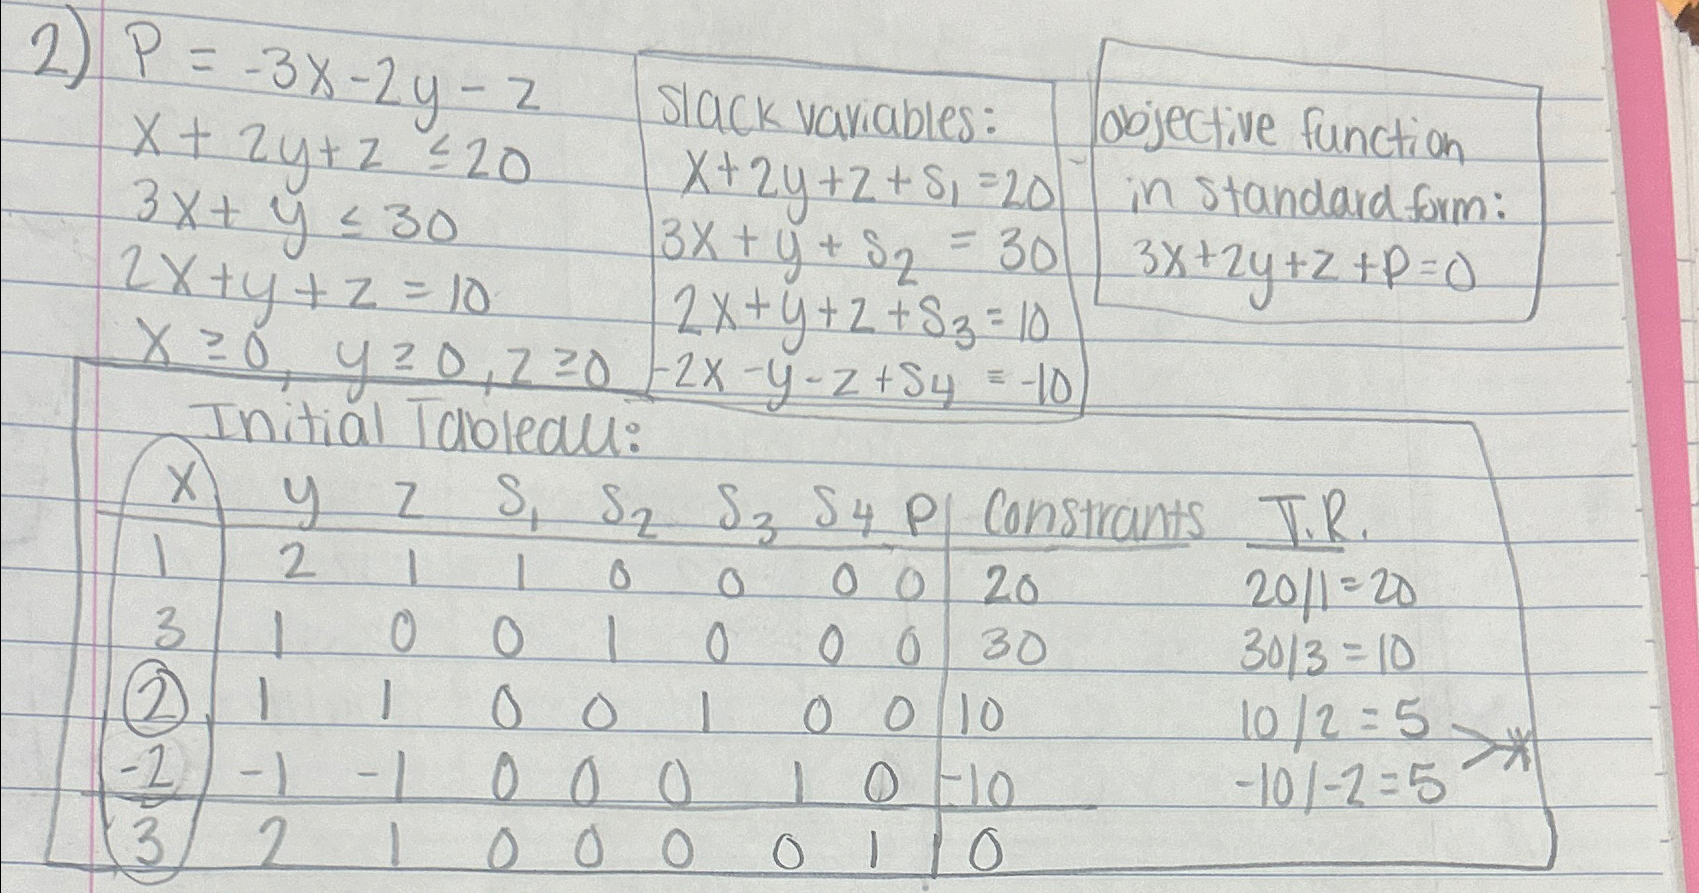 2) P = -3x-2y-z
x + 2y+z ≤20
3x+y ≤ 30
2x+y+z=10
x ≥0, y≥0, z≥0
slack variables:
x+2y+z+s₁=20
3x+y+s₂ = 30
2x+y+z+s₃=10
-2x-y-z+s₄ = -10
objective function
in standard form:
3x+2y+z+P=0
Initial Tableau:
x y z s₁ s₂ s₃ s₄ P Constrants T.R.
1 2 1 1 0 0 0 0 20 20/1=20
3 1 0 0 1 0 0 0 30 30/3=10
2 1 1 0 0 1 0 0 10 10/2=5
-2 -1 -1 0 0 0 1 0 -10 -10/-2=5
3 2 1 0 0 0 0 1 0